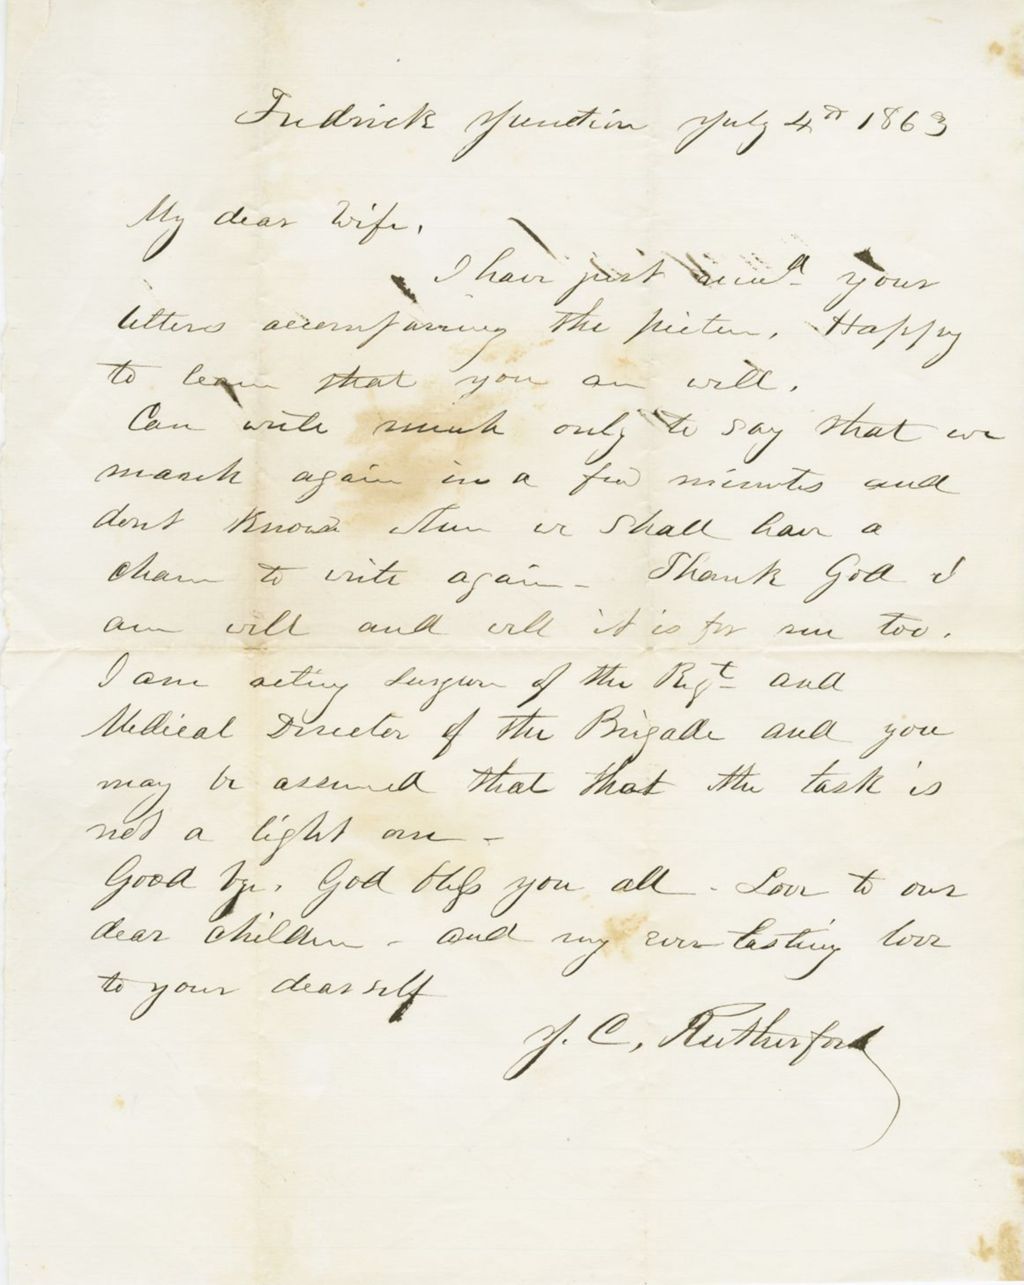 Fredrick Junction July 4th 1863
My dear Wife,
I have just recievd your
letters accompaning the picture. Happy
to learn that you are well.
Can write much only to say that we
march again in a few minutes and
dont know when we shall have a
chance to write again - Thank God I
am well and well it is for me too.
I am acting Surgeon of the Regt and
Medical Director of the Brigade and you
may be assured that that the task is
not a light one -
Good bye. God bless you all - Love to our
dear children - and my ever lasting love
to your dear self
J. C. Rutherford